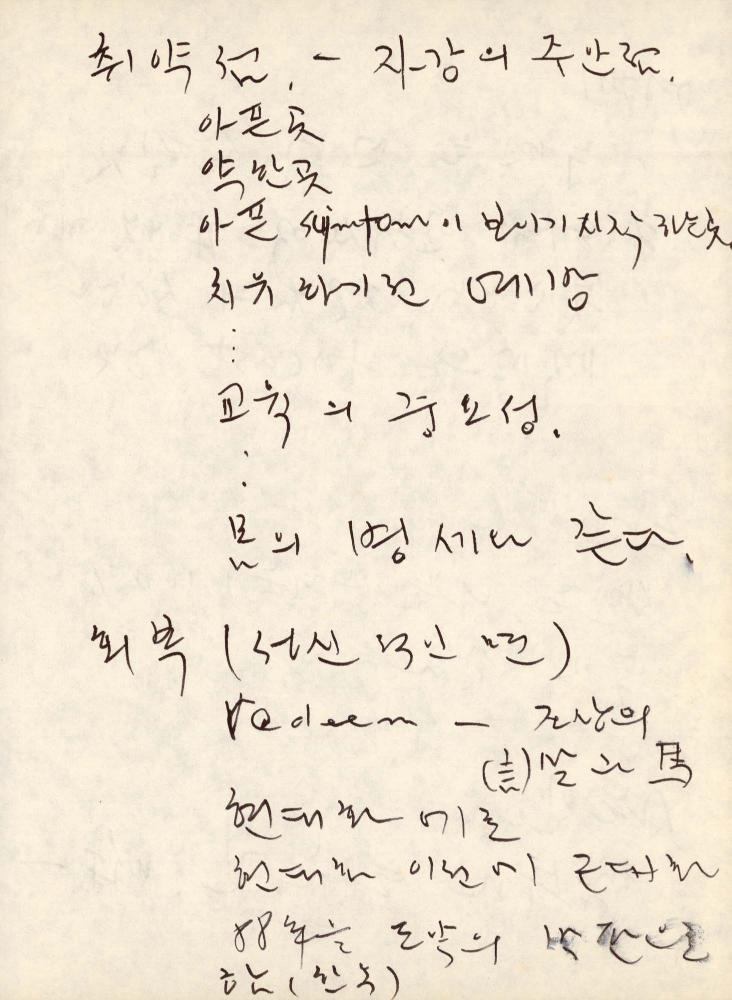 취약점. - 지-강의 주안점.
아픈 곳
약한 곳
아픈 symtom이 보이기 시작하는 곳
치유하기전 예방
⋮
교육의 중요성.
:
몸의 병세와 같다.
회복 (정신적인 면)
redeem - 조상의
(言) 말과 馬
현대화 예로
현대화 이전에 근대화
88年을 도약의 발판으로
(한국)